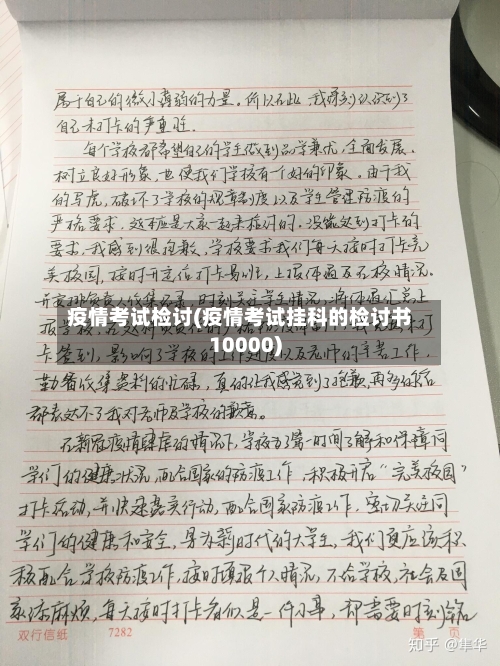 属于自己的微小薄弱的力量。所以在此，我深刻认识到了
自己未打卡的严重性。
每个学校都希望自己的学生做到品学兼优，全面发展，
树立良好形象，也使我们学校有一个好的印象。由于我
的写虎，破坏了学校的规章制度以及学生管理防疫的
严格要求，这本应是大家一起来维护的。没能达到打卡的
要求，我感到很抱歉，学校要求我们每天按时打卡完
美校园，按时开定位打卡易班，上报体温及在校情况。
疫情考试检讨(疫情考试挂科的检讨书
10000)
卡签到，影响了学校的工作进度以及老师的辛苦工作，
勤奋收集资料的忙碌，真的让我感觉到了抱歉，再多的话
都表达不了我对老师及学校的歉意。
在新冠疫情肆虐的情况下，学校为了第一时间了解和保障同
学们的健康状况，配合国家的防疫工作，积极开启“完美校园”
打卡活动，并快速落实行动，配合国家防疫工作，密切关注同
学们的健康和安全，身为新时代的大学生，我们更应该积
极配合学校防疫工作，按时填报个人情况，不给学校，社会及国
家添麻烦，每天按时打卡看似是一件小事，却需要时刻铭
双行信纸 7282 第 页
知乎 @隼华